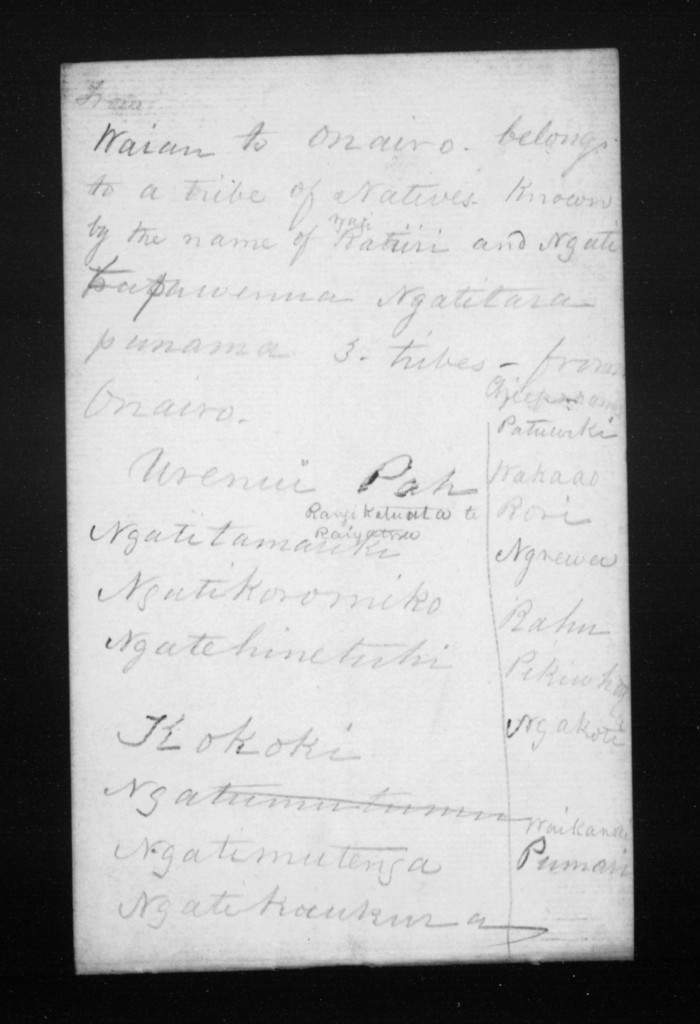 From
Waiau to Onairo. belongs
to a tribe of Natives known
ngati
by the name of Ratiiri and Ngati
papawenua Ngatitara
punama 3. tribes - from
Onairo.
Urenui Pah
Rangi Katuata te
Ngatitamariki
Ngatikoromiko
Ngatehinetuhi
Kokoki
Ngatumutumu
Ngatimutenga
Ngatikaukura
Patuwiki
Wakaao
Rori
Ngrewa
Rahu
Ngakoti
Waikanai
Pumari